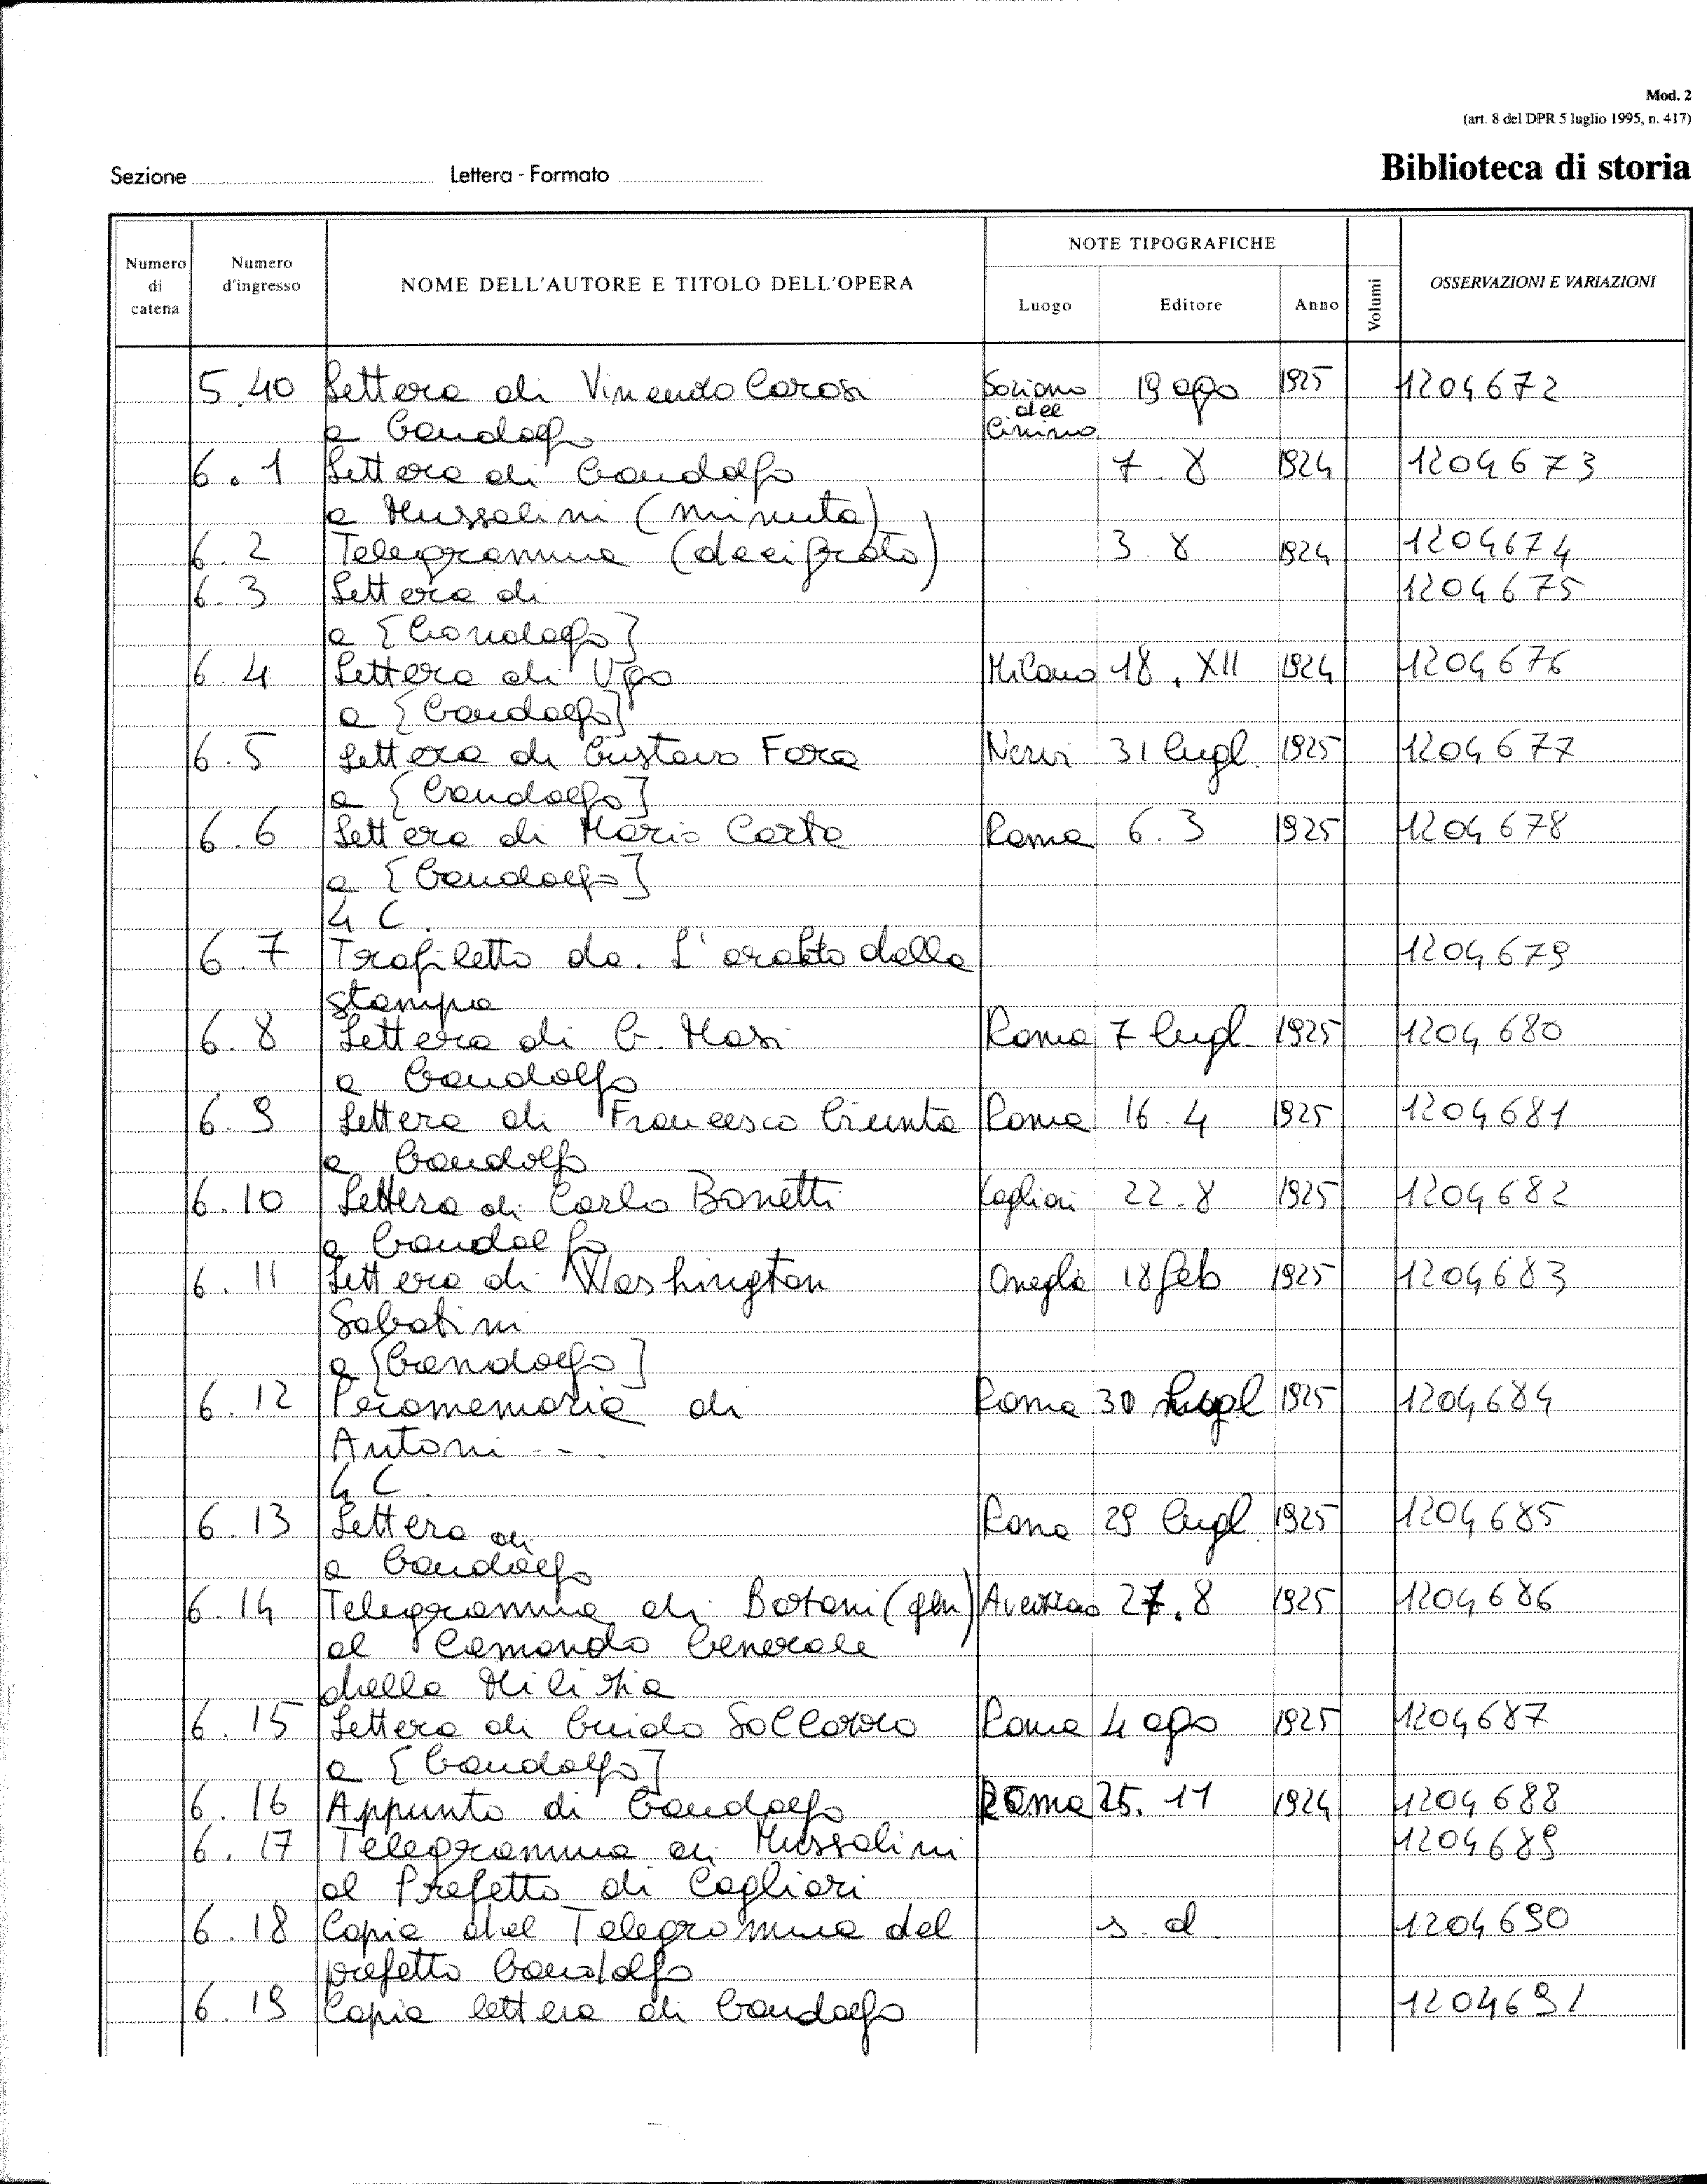 Mod. 2
(art. 8 del DPR 5 luglio 1995, n. 417)
Sezione Lettera - Formato Biblioteca di storia
Numero di catena Numero d'ingresso NOME DELL'AUTORE E TITOLO DELL'OPERA NOTE TIPOGRAFICHE Luogo Editore Anno Volumi OSSERVAZIONI E VARIAZIONI
5.40 Lettera di Carosi Soriano 19 ago 1925 1204672
del
a Gandolfo Cimino
6.1 Lettera di Gandolfo 7 8 1924 1204673
a Mussolini (minuta)
6.2 Telegramma (decifrato) 3 8 1924 1204674
6.3 Lettera di 1204675
a [Gandolfo]
6.4 Lettera di Ugo Milano 18. XII 1924 1204676
a [Gandolfo]
6.5 Lettera di Gustavo Fara Nervi 31 lugl. 1925 1204677
a [Gandolfo]
6.6 Lettera di Mario Carta Roma 6.3 1925 1204678
a [Gandolfo]
4 C.
6.7 Trafiletto da. L' della 1204679
stampa
6.8 Lettera di G. Masi Roma 7 lugl. 1925 1204680
a Gandolfo
6.9 Lettera di Francesco Giunta Roma 16.4 1925 1204681
a Gandolfo
6.10 Lettera di Carlo Bonetti Cagliari 22.8 1925 1204682
a Gandolfo
6.11 Lettera di Washington Oneglia 18 feb 1925 1204683
Sabatini
a [Gandolfo]
6.12 Promemoria di Roma 30 lugl 1925 1204684
Antoni ---
4 C.
6.13 Lettera di Roma 29 lugl. 1925 1204685
a Gandolfo
6.14 Telegramma di (gen) 27.8 1925 1204686
al Comando Generale
della Milizia
6.15 Lettera di Guido Roma 4 ago 1925 1204687
a [Gandolfo]
6.16 Appunto di Gandolfo Roma 25.11 1924 1204688
6.17 Telegramma di Mussolini 1204689
al Prefetto di Cagliari
6.18 Copia del Telegramma del s.d. 1204690
prefetto Gandolfo
6.19 Copia lettera di Gandolfo 1204691